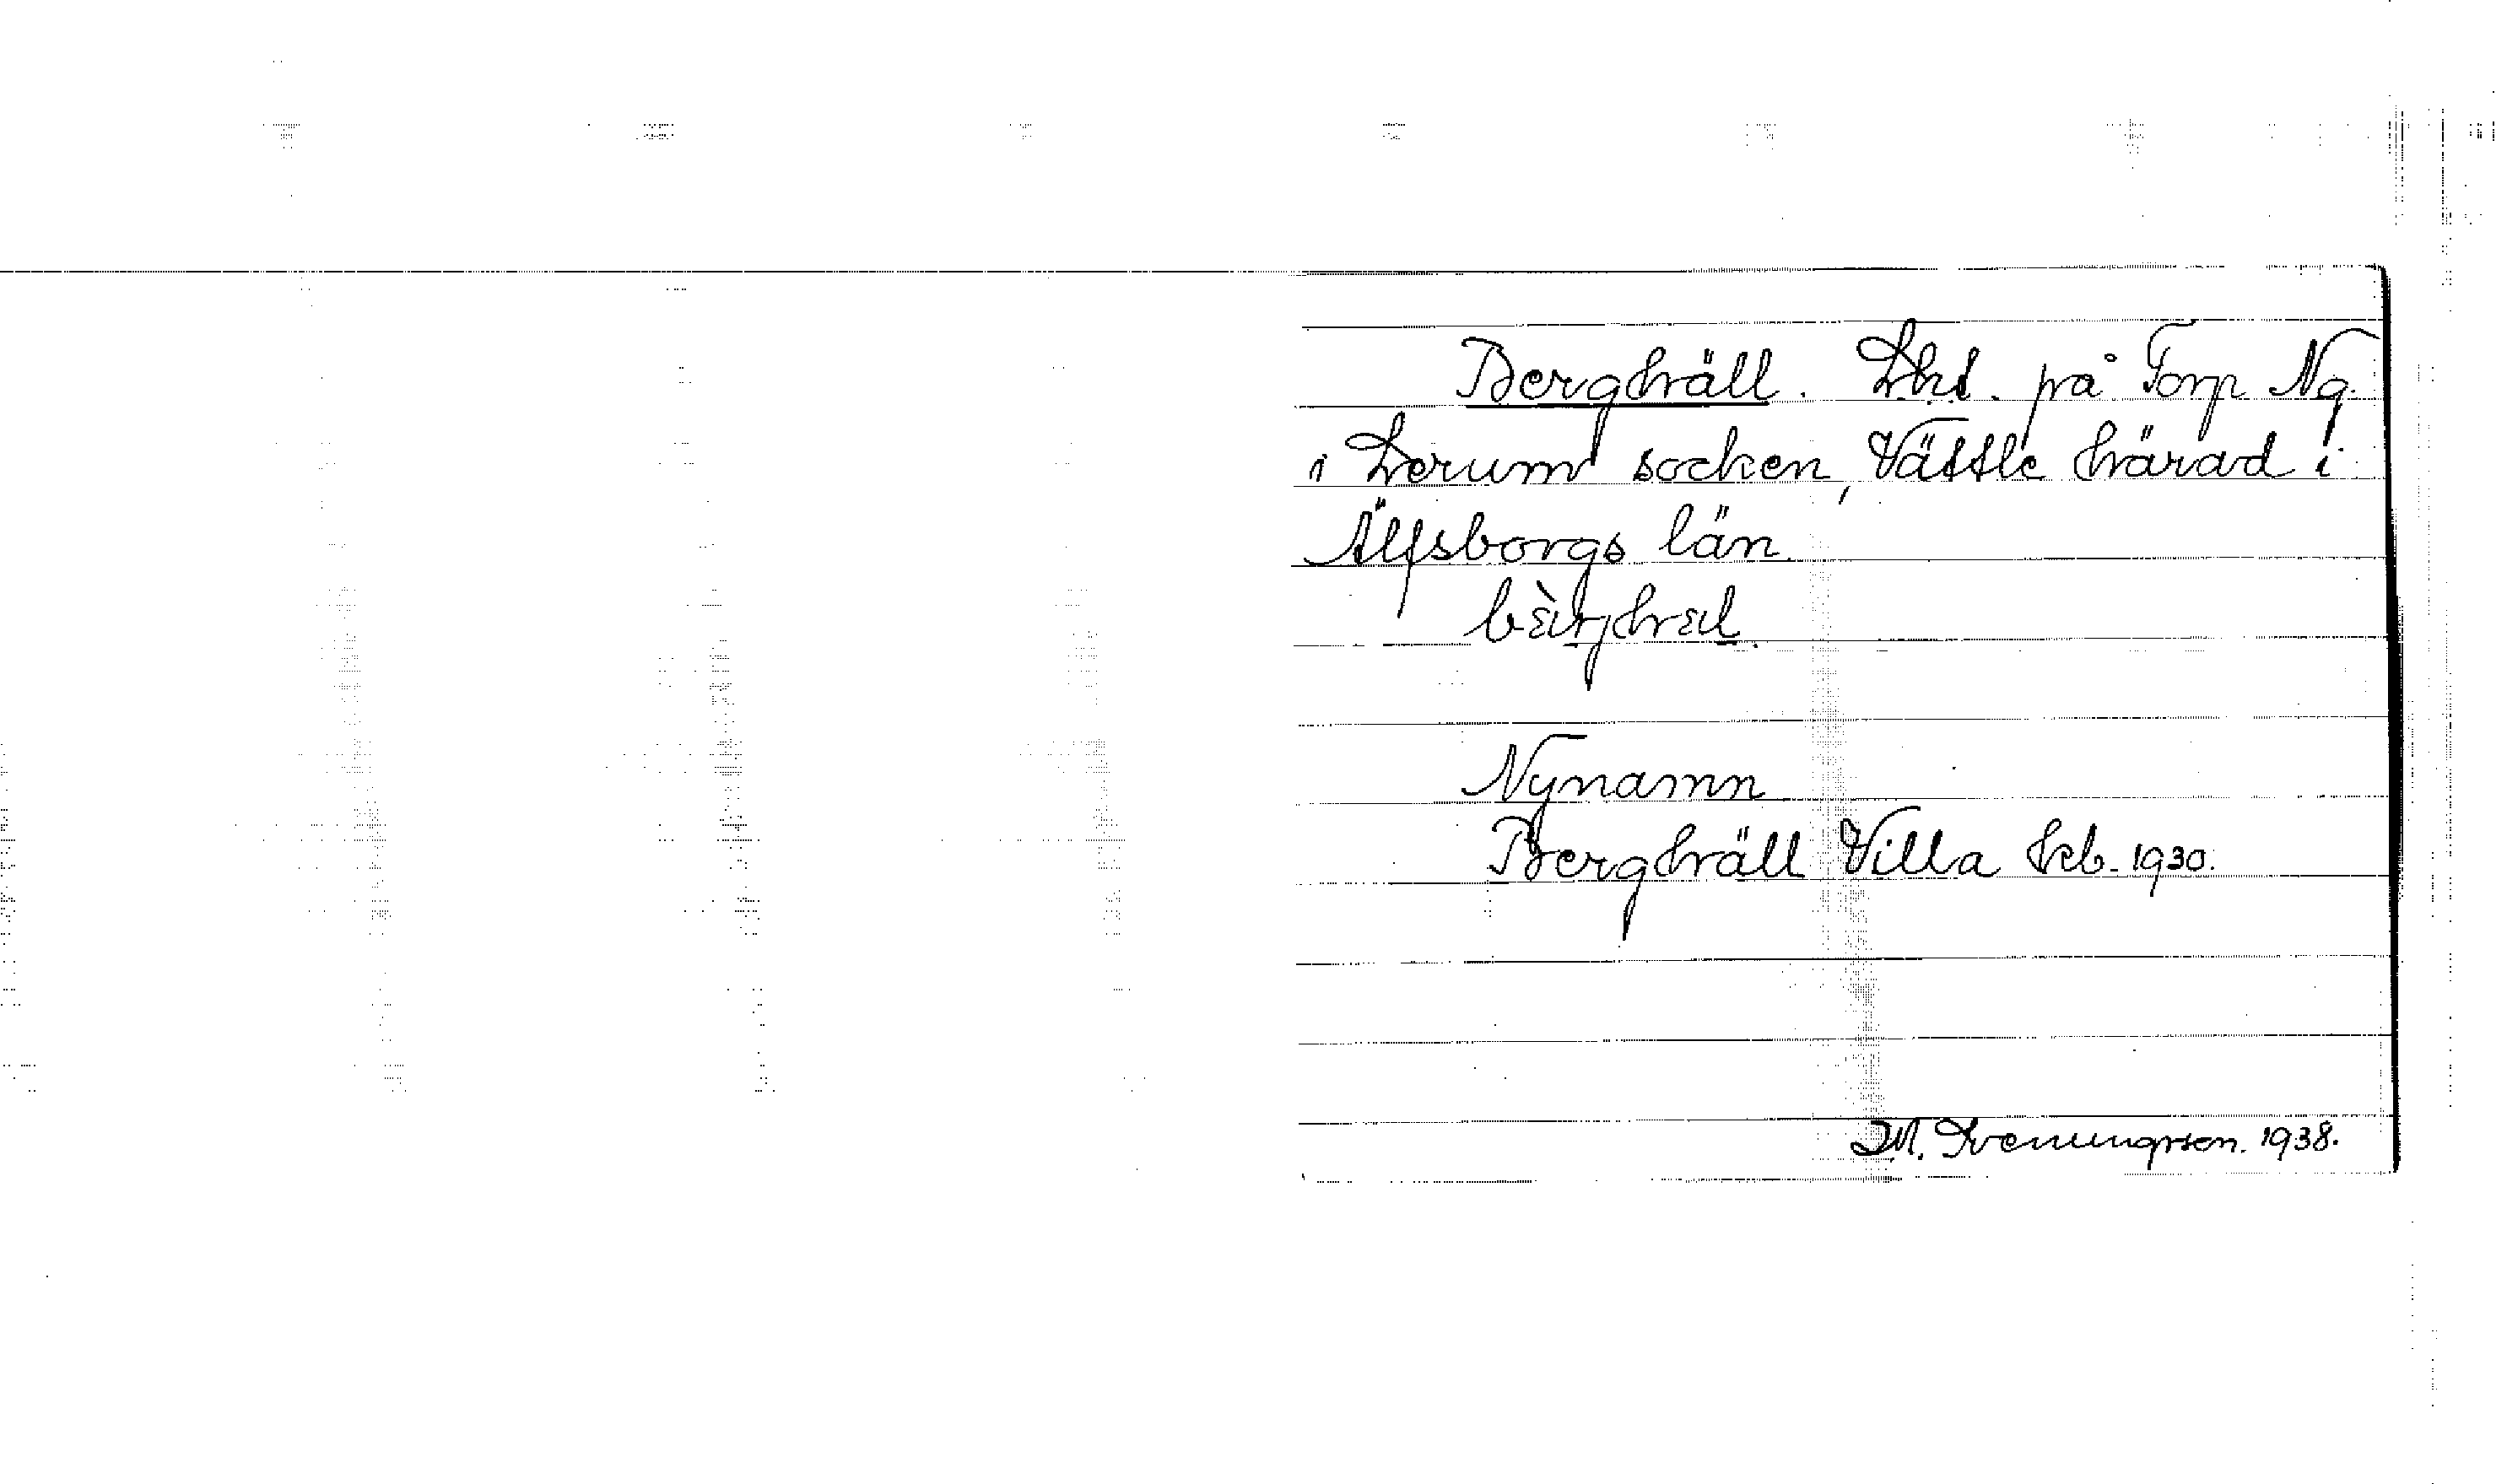 Berghäll. Lht. på Torp Ng.
i Lerum socken, Vättle härad i
Älfsborgs län
Nynamn
Berghäll Villa Ekb. 1930.
D.M. Svenungsson. 1938.